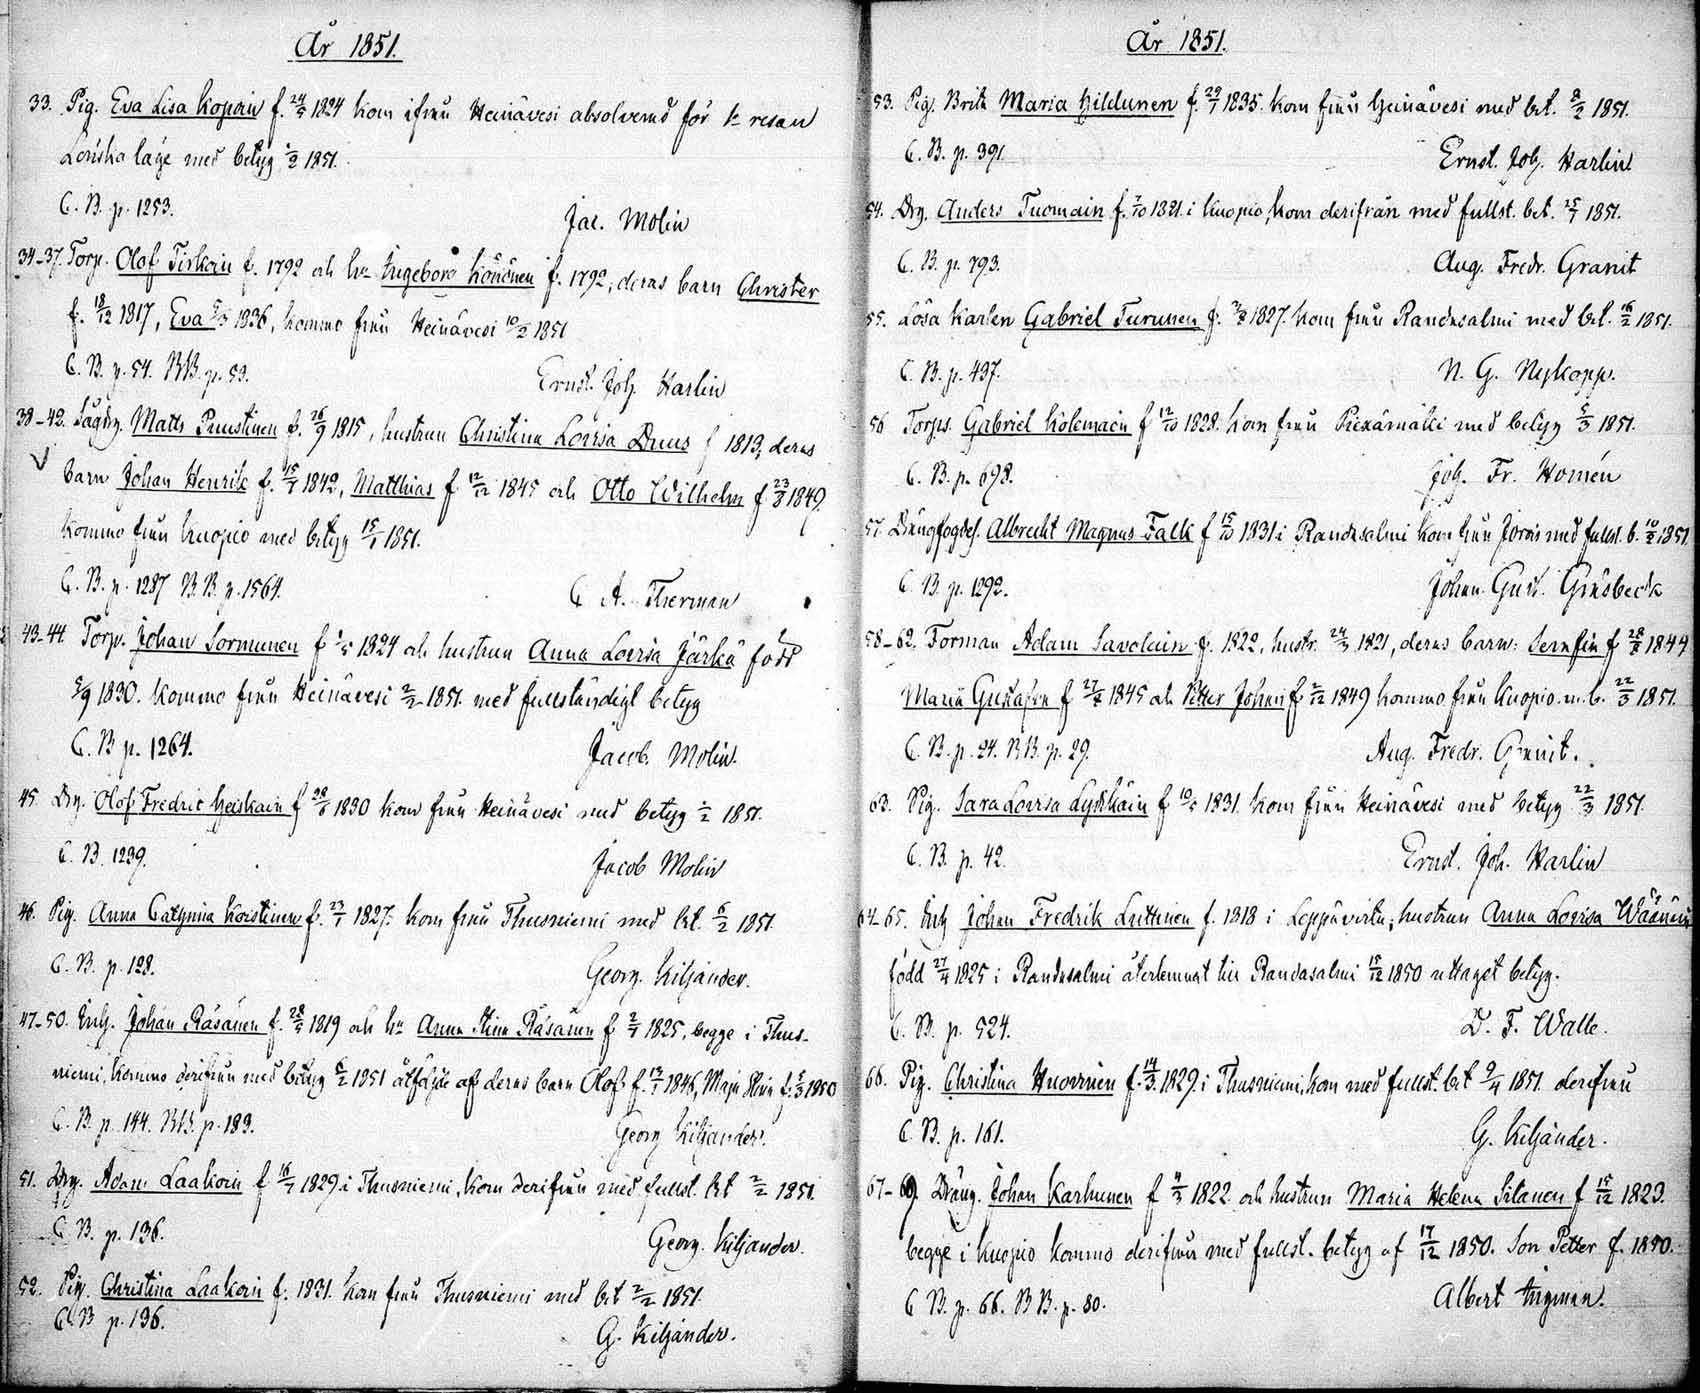 År 1851.
33. Pig. Eva Lisa Kopoin f. 24/5 1824 kom ifrån Heinävesi absolverad för 1a resan
med betyg 1851.
C. B. p. 1253.
Jac. Molin
34-37. Torp. Olof Tirkoin f. 1792 och hu Ingeborg Könönen f. 1792, deras barn Christer
f. 18/12 1817, Eva 1836, kommo från Heinävesi 10/2 1851
C. B. p. 54. BB. p. 53.
Ernst. Joh. Harlin
38-42. Matts Puustinen f. 26/9 1815, hustrun Christina Lovisa Duus f 1813, deras
barn Johan Henrik f. 15/7 1842, Matthias f 12/12 1845 och Otto Wilhelm f 23/8 1849
kommo från Kuopio med betyg 15/1 1851.
C. B. p. 1287 B.B. p. 1564.
C A. Therman
43-44. Torp. Johan Sormunen f 1/5 1824 och hustrun Anna Lovisa Järkä född
5/9 1830. kommo från Heinävesi 2/2 1851. med fullständigt betyg
C. B p. 1264.
Jacob. Molin.
45. Drg. Olof Fredric Heiskain f 28/8 1830 kom från Heinävesi med betyg 2/2 1851.
C. B. 1239.
Jacob Molin
46. Pig. Anna Catharina Koistinen f. 23/7 1827. kom från Thusniemi med bet. 6/2 1851.
C. B. p. 128.
Georg. Kiljander.
47-50. Inh. Johan Räsänen f. 28/5 1819 och hu Anna Stina Räsänen f 2/7 1825, begge i Thus-
niemi, kommo derifrån med betyg 6/2 1851 åtföljde af deras barn Olof f. 13/7 1846, Maja Stina f. 5/3 1850
C. B. p. 144. BB. p. 183.
Georg Kiljander.
51. Drg. Adam Laakoin f 16/7 1829 i Thusniemi, kom derifrån med fullst. bet 2/2 1851.
C. B. p. 136.
Georg. Kiljander.
52. Pig. Christina Laakoin f. 1831. kom från Thusniemi med bet 2/2 1851.
C.B p. 136.
G. Kiljander.
År 1851.
53. Pig. Brita Maria Hildunen f. 29/7 1835. kom från Heinävesi med bet. 8/2 1851.
C. B. p. 391.
Ernst. Joh. Harlin
54. Drg. Anders Tuomain f. 7/10 1821. i Kuopio, kom derifrån med fullst. bet. 25/1 1851.
C. B. p. 793.
Aug. Fredr. Granit
55. Lösa Karlen Gabriel Turunen f. 1827. kom från Randasalmi med bet. 16/2 1851.
C. B. p. 437.
N. G. Nykopp.
56 Torps. Gabriel Kolemain f 12/10 1828. kom från Piexämäki med betyg 5/3 1851.
C. B. p. 698.
Joh. Fr. Homén
57. Drängfogdes. Albrecht Magnus Falk f 15/10 1831 i Randasalmi kom från Jorois med fullst. b. 10/2 1851.
C. B. p. 1292.
Johan. Gust. Gråsbeck
58-62. Forman Adam Savolain f. 1822, hustr. 24/3 1821, deras barn: Serafin f 28/8 1844
Maria Gustafva f 27/8 1845 och Petter Johan f 2/12 1849 kommo från Kuopio. m. b. 22/3 1851.
C. B. p. 24. BB. p. 29.
Aug. Fredr. Granit.
63. Pig. Sara Lovisa Lyykäin f 10/5 1831. kom från Heinävesi med betyg 22/3 1851.
C. B. p. 42.
Ernst. Joh. Harlin
64-65. Inh Johan Fredrik Luttinen f. 1818 i Leppävirta, hustrun Anna Lovisa Väänäin
född 27/4 1825 i Randasalmi återlemnat till Randasalmi 15/12 1850 uttaget betyg.
C. B. p. 524.
D. F. Walle.
66. Pig. Christina Huovinen f. 14/3 1829. i Thusniemi, kom med fullst. bet 9/4 1851. derifrån
C. B. p. 161.
G. Kiljander.
67-69. Dräng. Johan Karhunen f 4/3 1822. och hustrun Maria Helena Sitanen f 15/12 1823.
begge i Kuopio kommo derifrån med fullst. betyg af 17/12 1850. Son Petter f. 1850.
C B. p. 66. BB. p. 80.
Albert Ingman.